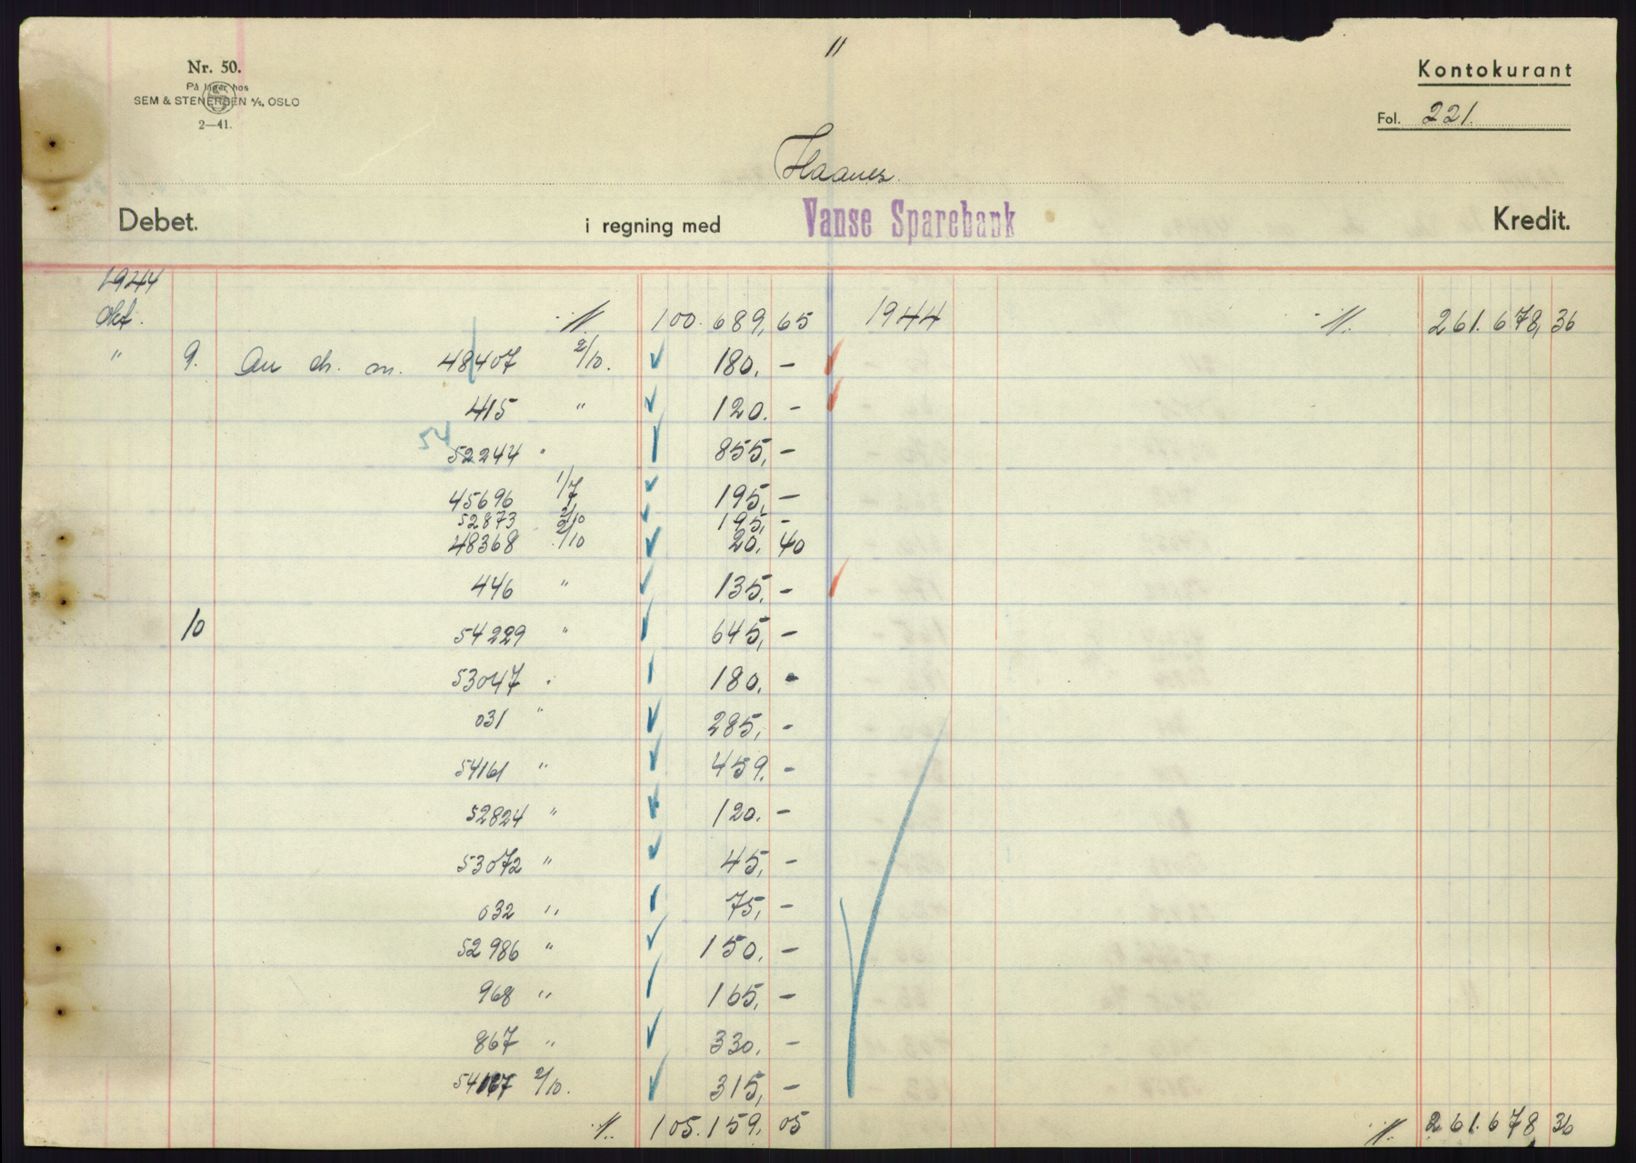 11
Nr. 50.
På lager hos
SEM & STENERSEN A/S, OSLO
2—41.
Kontokurant
Fol. 221.
Haanes
Debet. i regning med Vanse Sparebank Kredit.
1944
Okt. 100.689,65 1944 261.678,36
" 9. An ch. m. 48407 2/10. 180.-
415 " 120.-
54
52244 " 855,-
45696 1/7 195,-
52873 2/10 195,-
48368 2/10 20,40
446 " 135.-
10 54229 " 645,-
53047 " 180.-
031 " 285,-
54161 " 459.-
52824 " 120.-
53072 " 45,-
032 " 75,-
52986 " 150.-
968 " 165,-
867 " 330.-
54167 2/10. 315,-
105.159,05 261.678,36